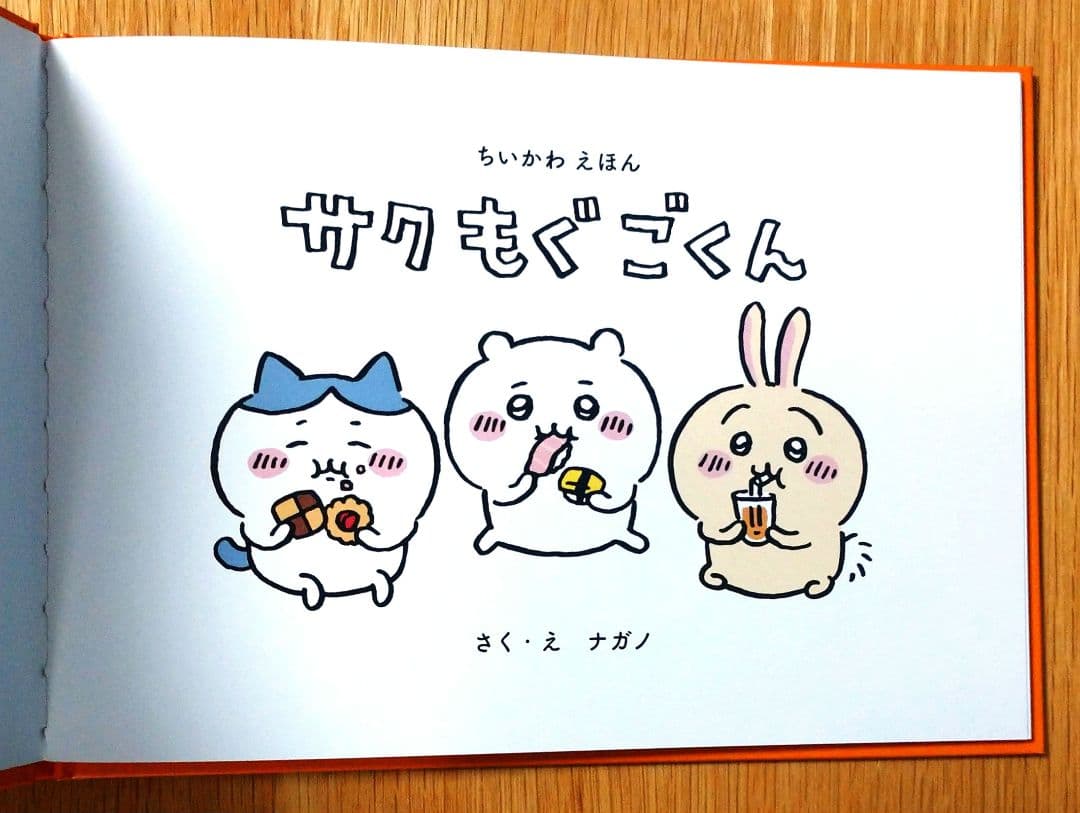 ちいかわ えほん
サク もぐ ごくん
さく・え　ナガノ